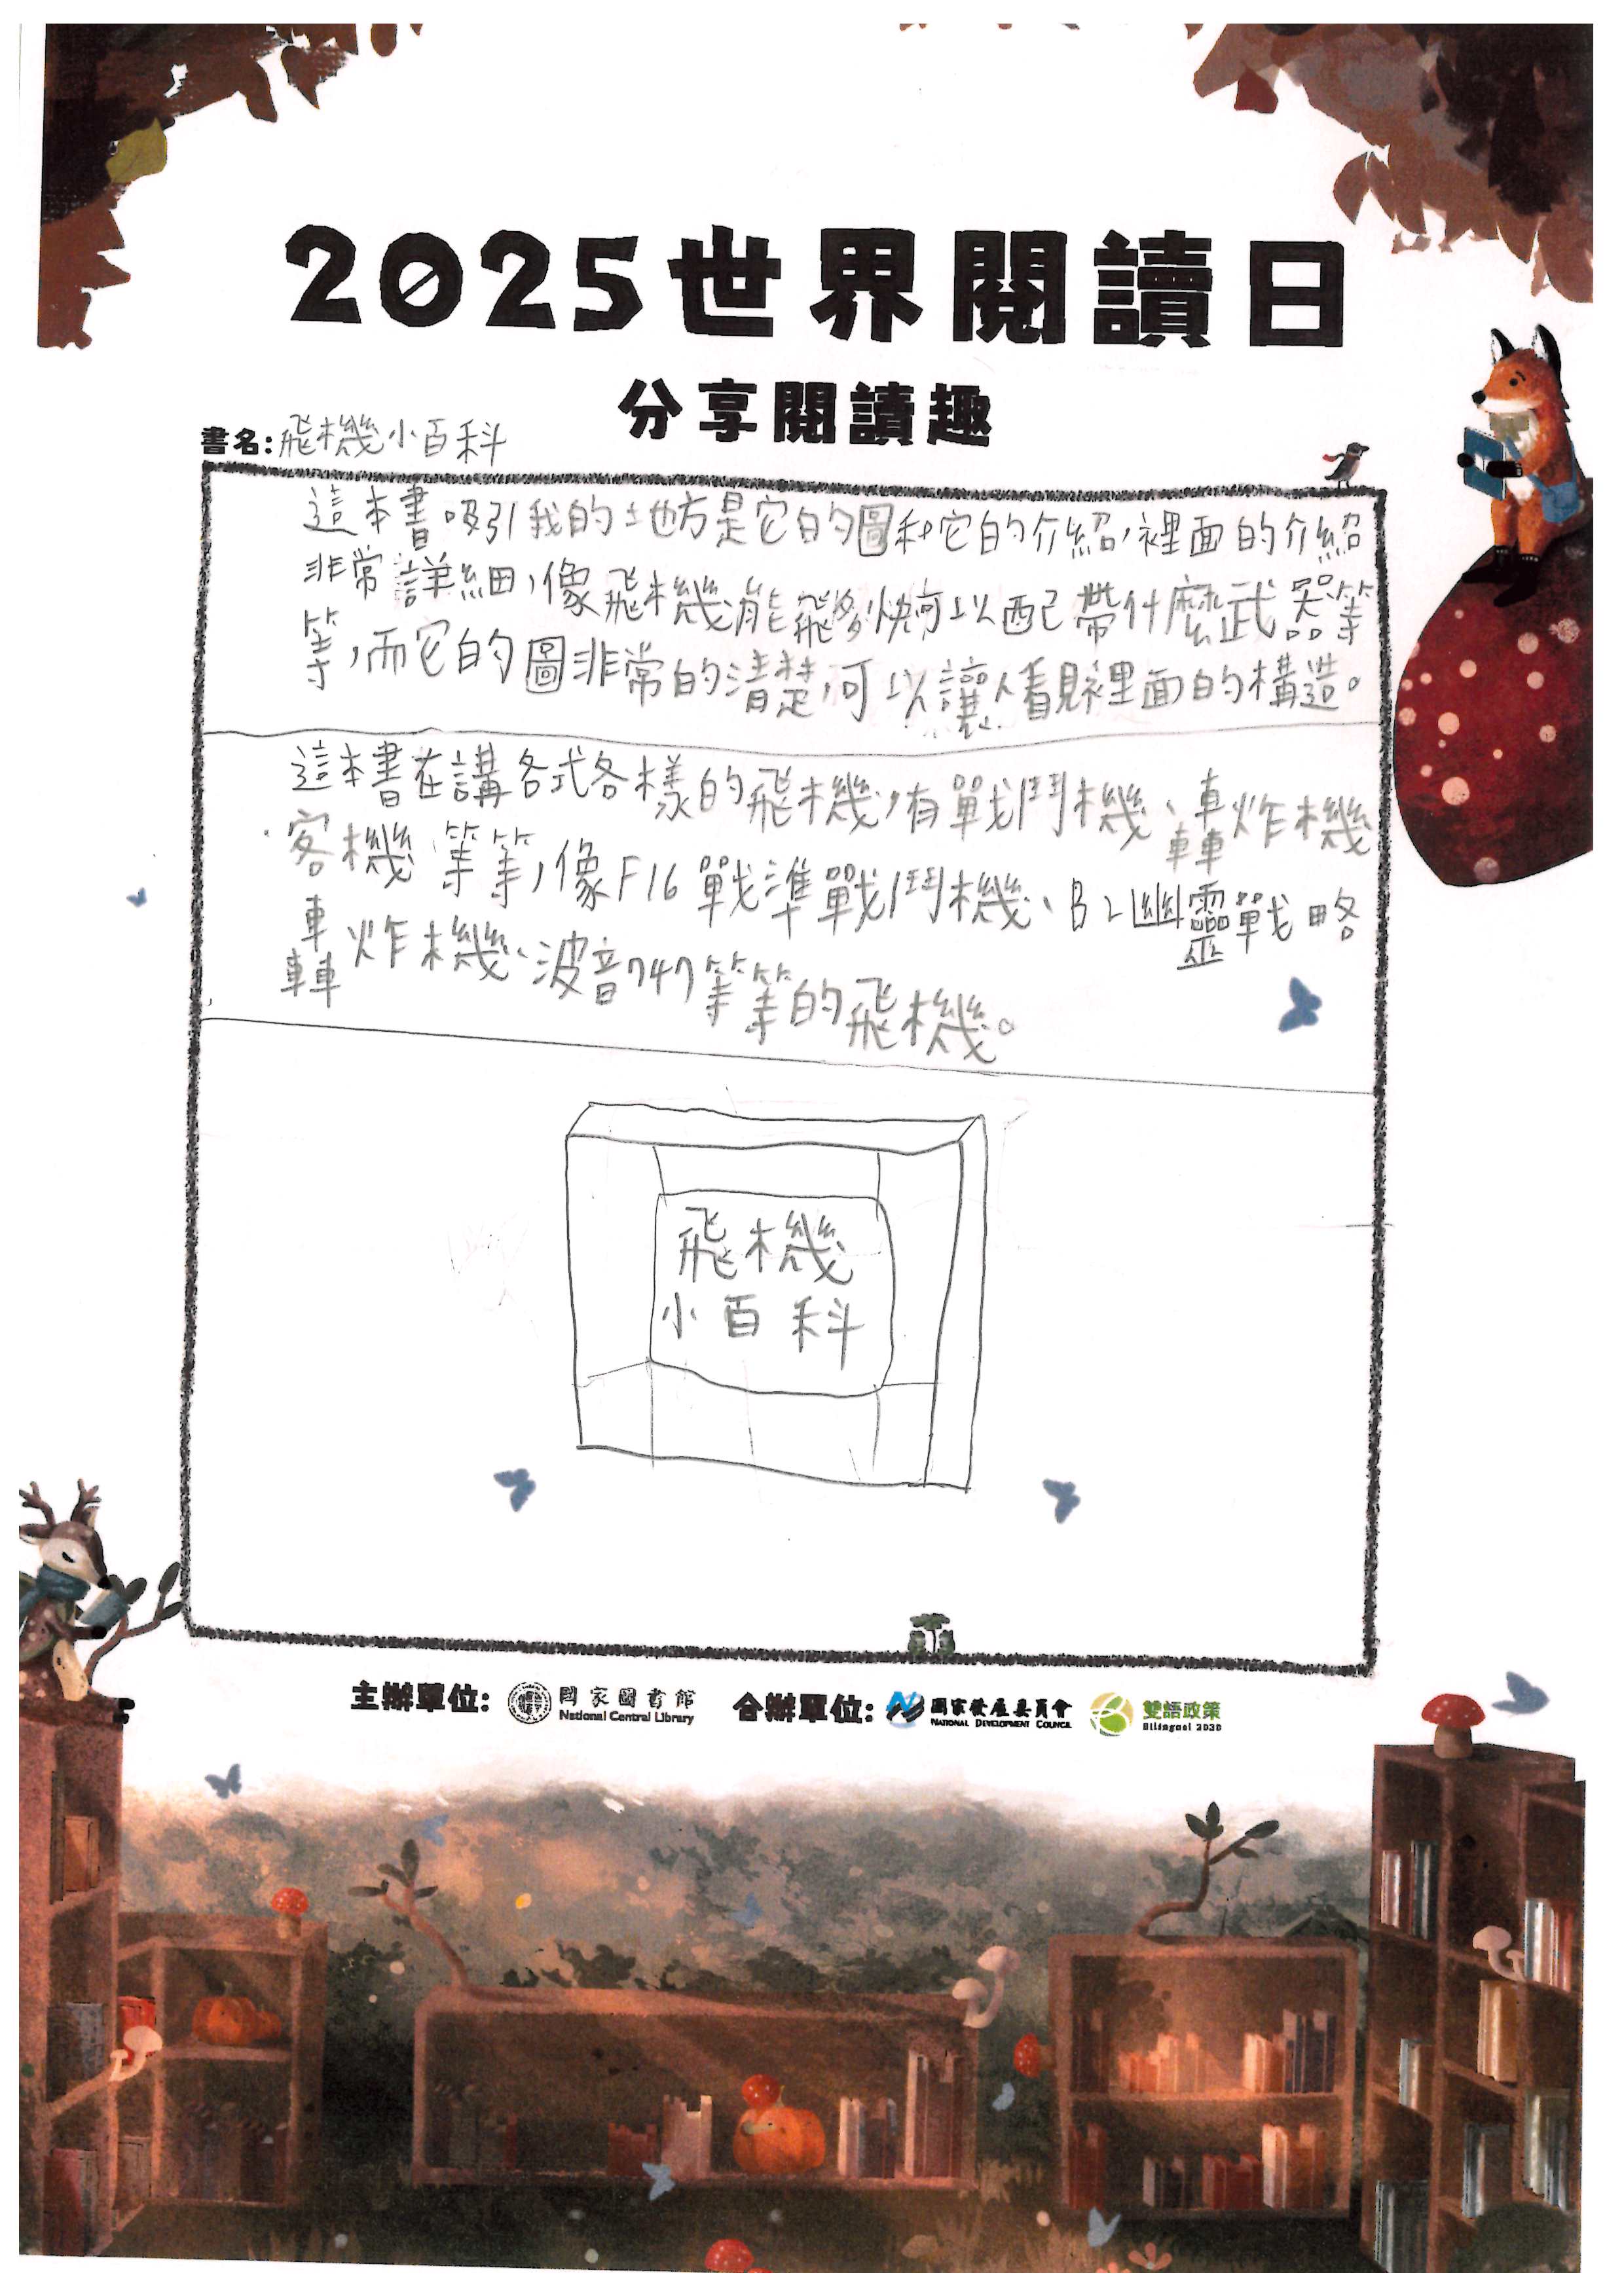 2025世界閱讀日
分享閱讀趣
書名:飛機小百科
這本書吸引我的地方是它的圖和它的介紹,裡面的介紹
非常詳細,像飛機能飛多快可以配帶什麼武器等
等,而它的圖非常的清楚,可以讓人看見裡面的構造。
這本書在講各式各樣的飛機,有戰鬥機、轟炸機
客機等等,像F16戰隼戰鬥機、B2幽靈戰略
轟炸機、波音747等等的飛機。
飛機
小百科
主辦單位: 國家圖書館 合辦單位: 國家發展委員會 雙語政策
National Central Library NATIONAL DEVELOPMENT COUNCIL Bilingual 2030